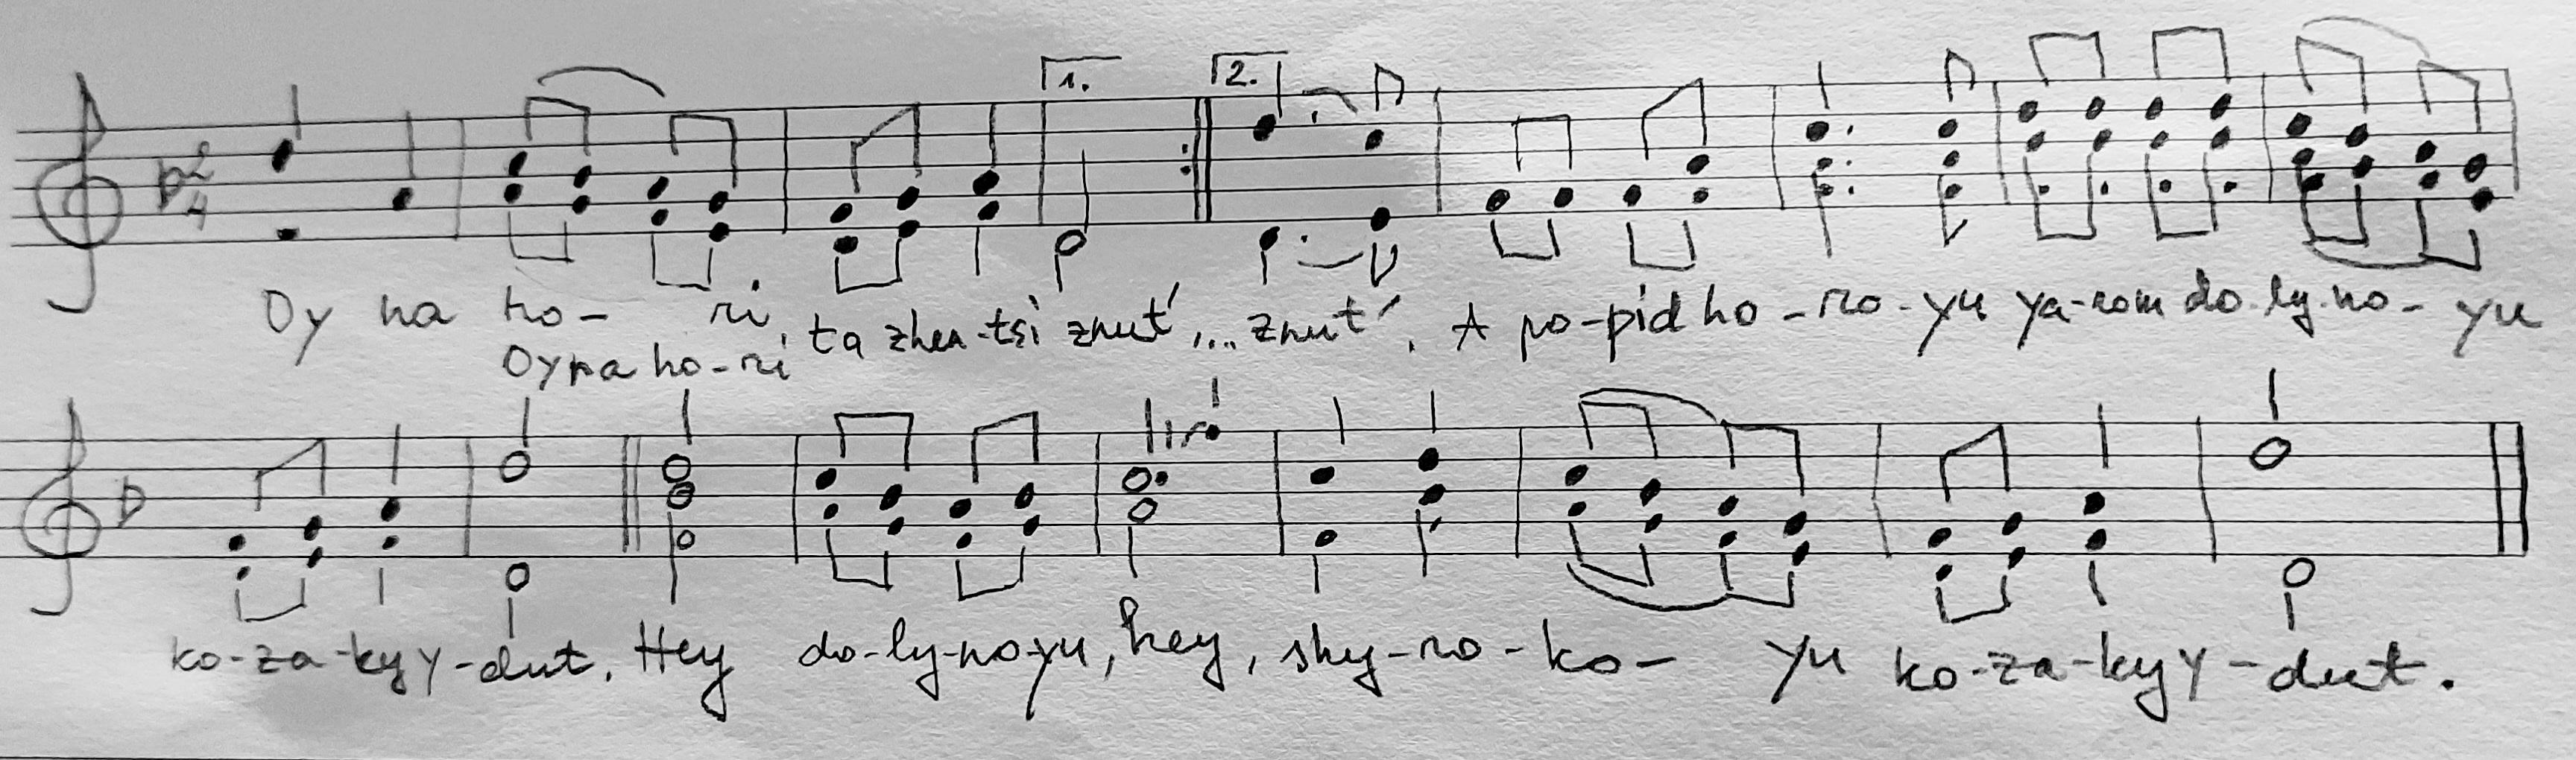 1. 2.
2
4
Oy na ho- ri, ta zhen-tsi znut' ,... znut'. A po-pid ho-ro-yu ya-rom do-ly-no-yu
Oy na ho-ri
ko-za-ky y-dut. Hey do-ly-no-yu, hey, shy-ro-ko- yu ko-za-ky y-dut.